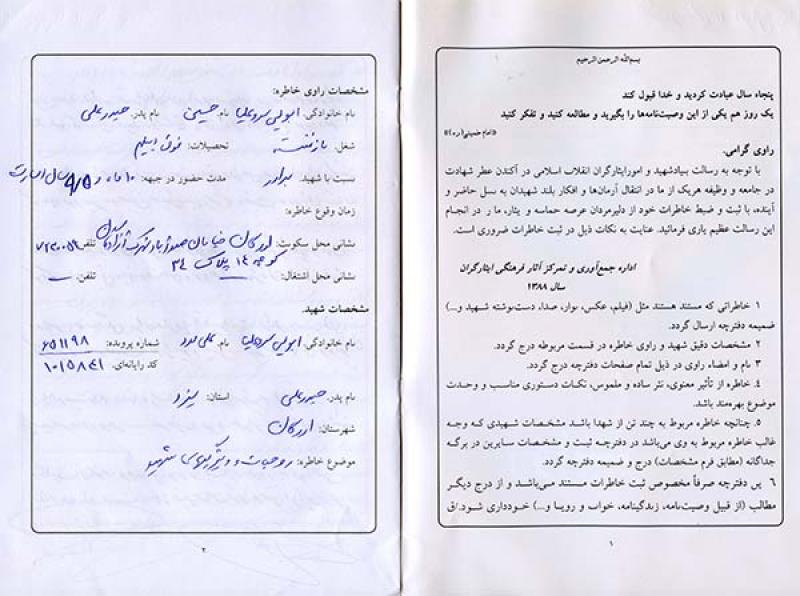 بسم‌الله الرحمن الرحیم
پنجاه سال عبادت کردید و خدا قبول کند
یک روز هم یکی از این وصیت‌نامه‌ها را بگیرید و مطالعه کنید و تفکر کنید
«امام خمینی(ره)»
راوی گرامی.
با توجه به رسالت بنیادشهید و امورایثارگران انقلاب اسلامی در آکندن عطر شهادت
در جامعه و وظیفه هریک از ما در انتقال آرمان‌ها و افکار بلند شهیدان به نسل حاضر و
آینده، با ثبت و ضبط خاطرات خود از دلیرمردان عرصه حماسه و یثار، ما ر در انجام
این رسالت عظیم یاری فرمائید. عنایت به نکات ذیل در ثبت خاطرات ضروری است.
اداره جمع‌آوری و تمرکز آثار فرهنگی ایثارگران
سال ۱۳۸۸
۱ خاطراتی که مستند هستند مثل (فیلم، عکس، نوار، صدا، دست‌نوشته شهید و...)
ضمیمه دفترچه ارسال گردد.
۲ مشخصات دقیق شهید و راوی خاطره در قسمت مربوطه درج گردد.
۳ نام و امضاء راوی در ذیل تمام صفحات دفترچه درج گردد.
۴ خاطره از تأثیر معنوی، نثر ساده و ملموس، نکات دستوری مناسب و وحدت
موضوع بهره‌مند باشد.
۵ چنانچه خاطره مربوط به چند تن از شهدا باشد مشخصات شهیدی که وجه
غالب خاطره مربوط به وی می‌باشد در دفترچه ثبت و مشخصات سایرین در برگه
جداگانه (مطابق فرم مشخصات) درج و ضمیمه دفترچه گردد.
۶ ین دفترچه صرفاً مخصوص ثبت خاطرات مستند می‌باشد و از درج دیگر
مطالب (از قبیل وصیت‌نامه، زندگینامه، خواب و رویا و...) خودداری شود.
۱
مشخصات راوی خاطره:
نام خانوادگی: نام: حسین نام پدر: حیدرعلی
شغل: بازنشسته تحصیلات: فوق دیپلم
نسبت با شهید: برادر مدت حضور در جبهه: ۱۰ ماه و سال اسارت
زمان وقوع خاطره:
نشانی محل سکونت: اردکان خیابان تلفن:
کوچه ۱۴ پلاک ۳۴
نشانی محل اشتغال: تلفن: ــ
مشخصات شهید:
نام خانوادگی: نام: علی شماره پرونده: ۶۵۱۱۹۸
کد رایانه‌ای: ۱۰۱۵۸۴۱
نام پدر: حیدرعلی استان: یزد
شهرستان: اردکان
موضوع خاطره: روحیات و ویژگیهای شهید
۲